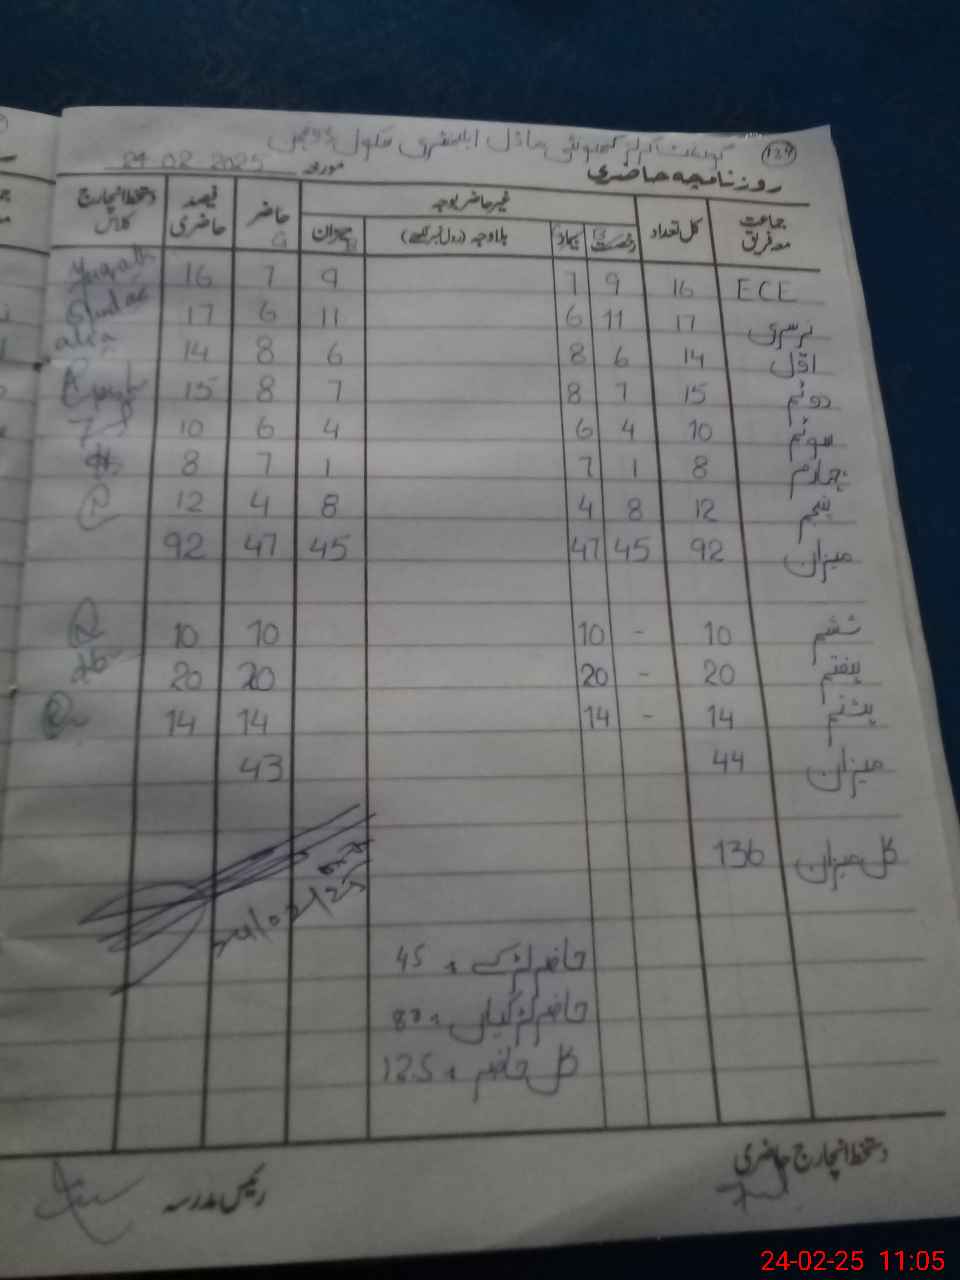 گورنمنٹ گرلز کمیونٹی ماڈل ایلیمنٹری سکول
129
روزنامچہ حاضری مورخہ 24 02 2025
جماعت معہ فریق کل تعداد غیر حاضر بوجہ حاضر فیصد حاضری دستخط انچارج کلاس
رخصت بیمار بلاوجہ (رول نمبر لکھیے) میزان
ECE 16 9 7 9 7 16
نرسری 17 11 6 11 6 17
اول 14 6 8 6 8 14
دوئم 15 7 8 7 8 15
سوئم 10 4 6 4 6 10
چہارم 8 1 7 1 7 8
پنجم 12 8 4 8 4 12
میزان 92 45 47 45 47 92
ششم 10 - 10 10 10
ہفتم 20 - 20 20 20
ہشتم 14 - 14 14 14
میزان 44 43
کل میزان 136
24/02/25
حاضر لڑکے 45
حاضر لڑکیاں 80
کل حاضر 125
دستخط انچارج حاضری
رئیس مدرسہ
24-02-25 11:05